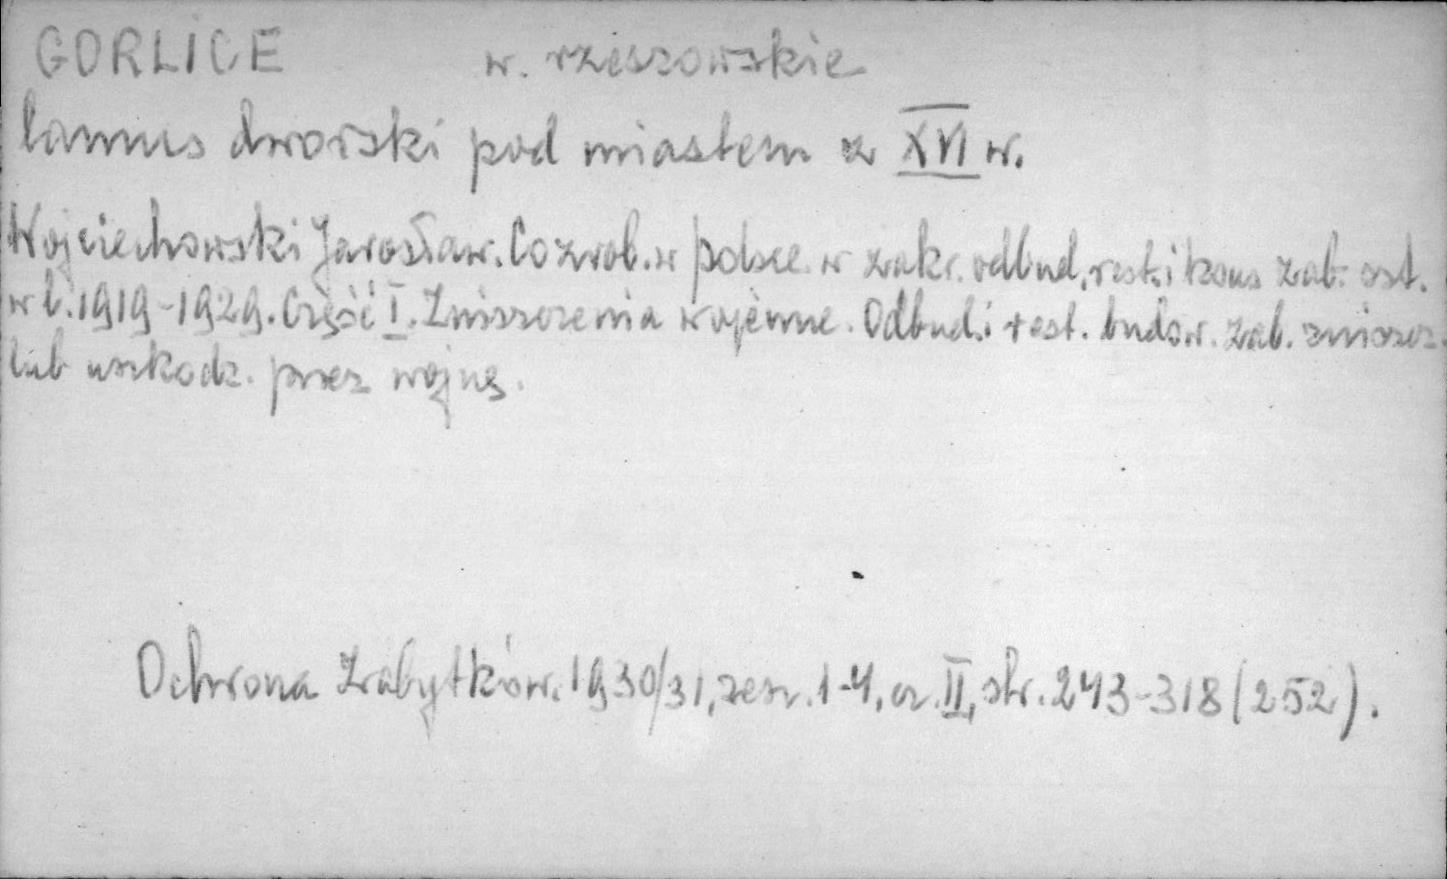 GORLICE w. rzeszowskie
lamus dworski pod miastem z XVI w.
Wojciechowski Jarosław. Co zrob. w Polsce w zakr. odbud., rest. i kons zab. ost.
w l. 1919-1929. Część I. Zniszczenia wojenne. Odbud. i rest. budow. zab. zniszcz.
lub uszkodz. przez wojnę.
Ochrona Zabytków. 1930/31, zesz. 1-4, cz. II, str. 243-318 (252).